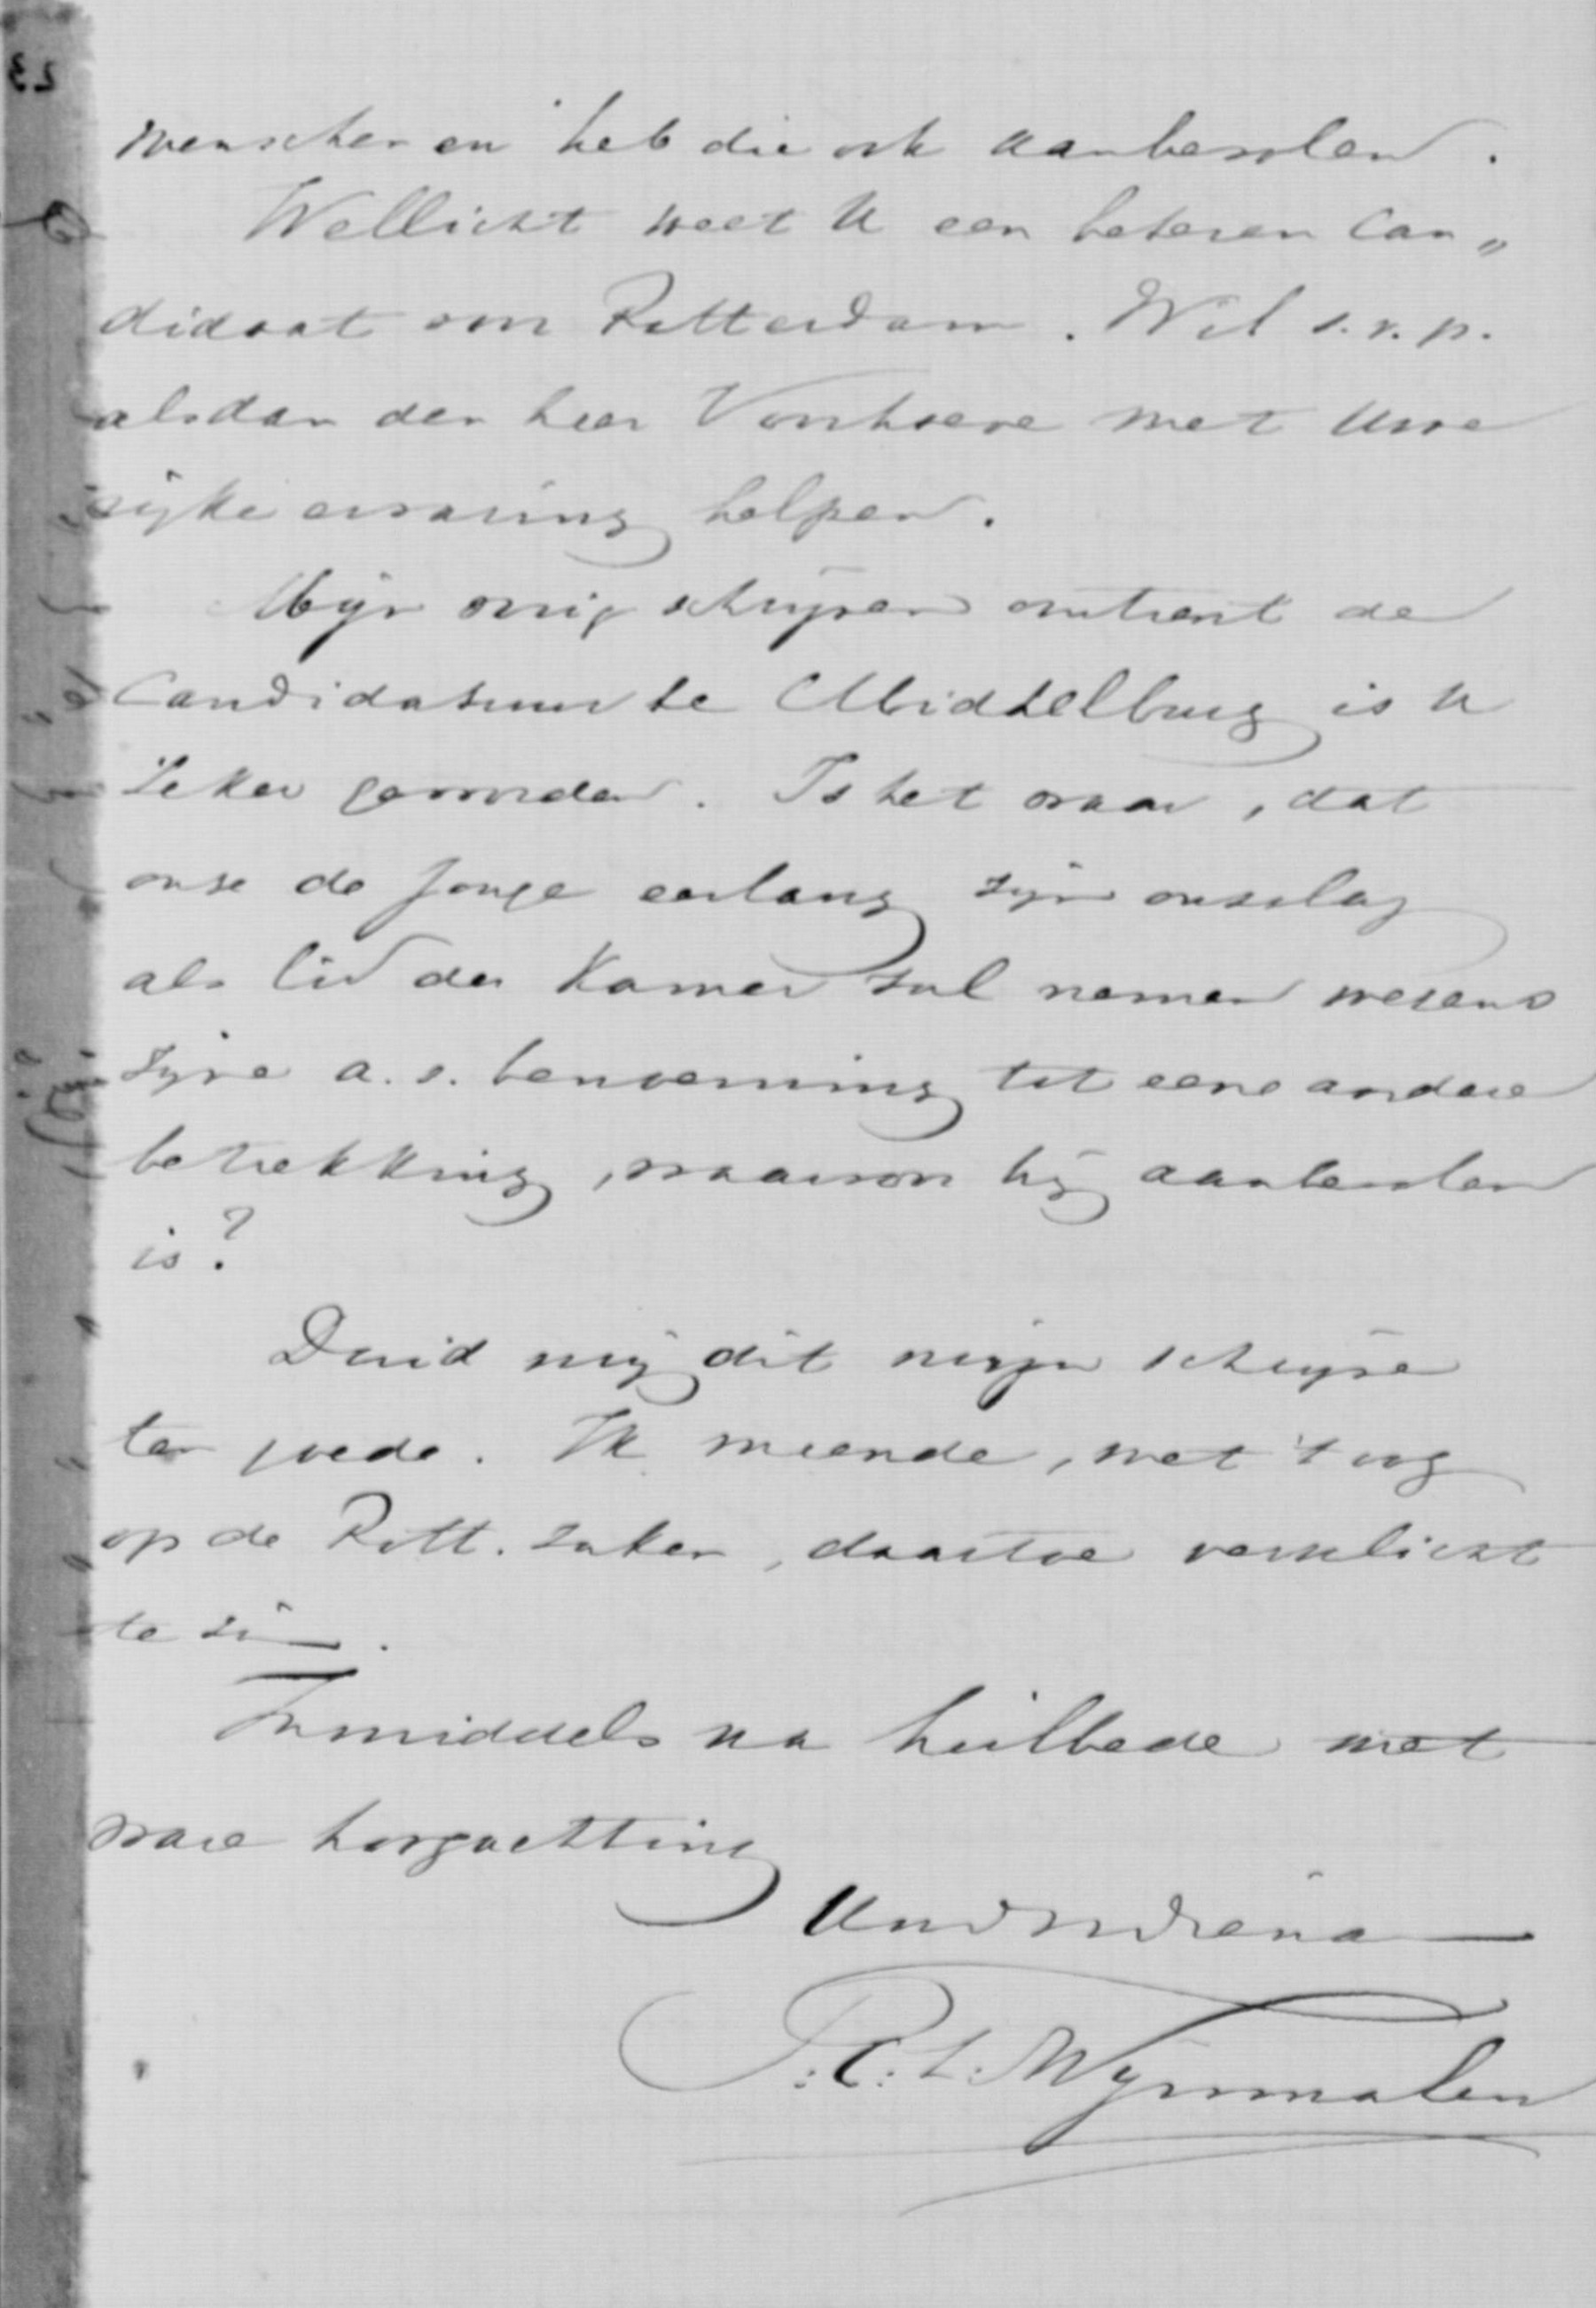 menschen en heb die ook aanbevolen.
Wellicht weet U een beteren Can„
didaat voor Rotterdam. Wil s.v.p.
alsdan den heer Vonkhoeve met Uwe
rijke ervaring helpen.
Mijn vorig schrijven omtrent de
Candidatuur te Middelburg is U
zeker geworden. Is het waar, dat
onze de Jonge eerlang zijn ontslag
als lid der Kamer zal nemen wegens
zijne a.s. benoeming tot eene andere
betrekking, waarvoor hij aanbevolen
is?
Duid mij dit mijn schrijven
ten goede. Ik meende, met 't oog
op de Rott. zaken, daartoe verplicht
te zijn.
Inmiddels na heilbede met
ware hoogachting
Uw dw dienaar
P. C. L. Wijnmalen